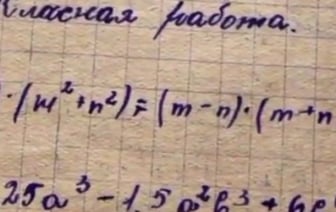 Классная работа.
·(m²+n²)=(m-n)·(m+n
25a³-1,5a²b³+